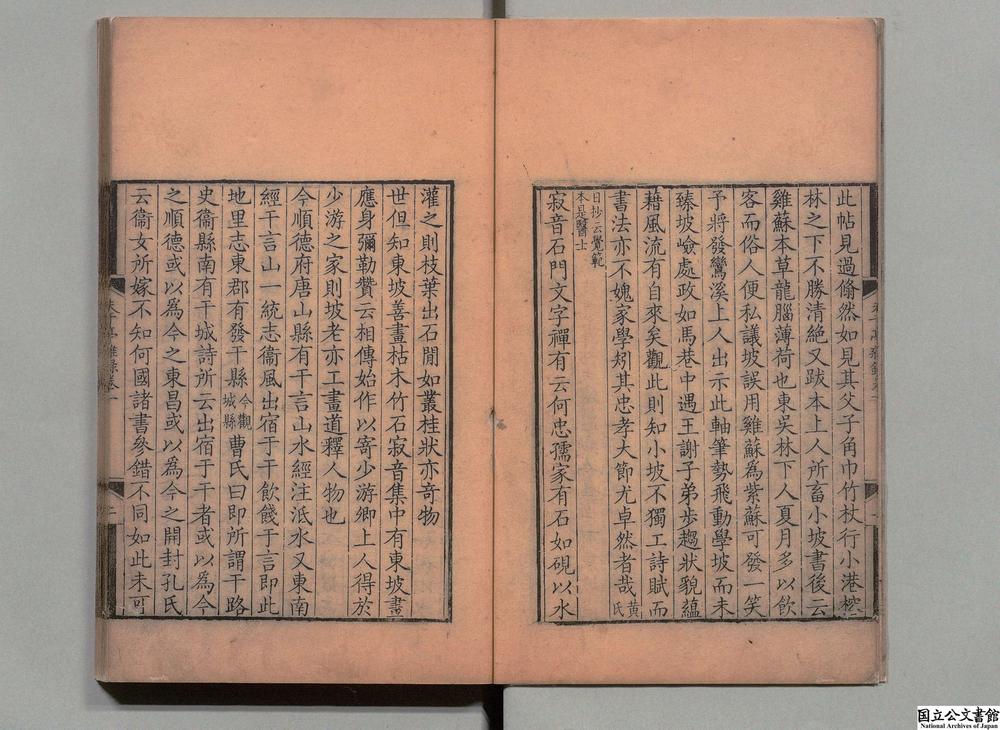 此帖見過翛然如見其父子角巾竹杖行小港榕
林之下不勝清絶又跋本上人所畜小坡書後云
雞蘇本草龍腦薄荷也東吳林下人夏月多以飲
客而俗人便私議坡誤用雞蘇為紫蘇可發一笑
予將發鸞溪上人出示此軸筆勢飛動學坡而未
臻坡嶮處政如馬巷中遇王謝子弟步趨狀貌蘊
藉風流有自來矣觀此則知小坡不獨工詩賦而
書法亦不媿家學矧其忠孝大節尤卓然者哉黃氏
日抄云覺範本是醫士
寂音石門文字禪有云何忠孺家有石如硯以水
灌之則枝葉出石間如叢桂狀亦奇物
世但知東坡善畫枯木竹石寂音集中有東坡畫
應身彌勒贊云相傳始作以寄少游卿上人得於
少游之家則坡老亦工畫道釋人物也
今順德府唐山縣有干言山水經注泜水又東南
經干言山一統志衞風出宿于干飲餞于言即此
地里志東郡有發干縣今觀城縣曹氏曰即所謂干路
史衞縣南有干城詩所云出宿于干者或以為今
之順德或以為今之東昌或以為今之開封孔氏
云衞女所嫁不知何國諸書參錯不同如此未可
二
国立公文書館
National Archives of Japan